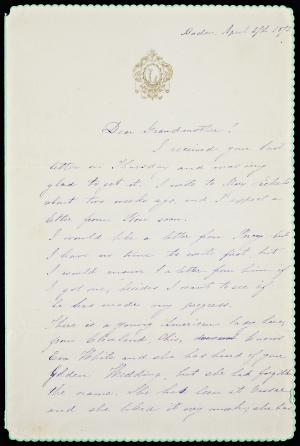 Baden, April 5th 187
Dear Grandmother!
I received your last
letter on Thursday and was very
glad to get it. I wrote to
about two weeks ago, and I expect a
letter from soon.
I would like a letter from but
I have no time to write first but
I would answer a letter from him if
I got one, besides I want to see if
he has made any progress.
There is a young American lady here,
from Cleveland, Ohio, knows
Eva White and she has heard of your
Golden Wedding, but she had forgotten
the name. She has been at
and she liked it very much, she has